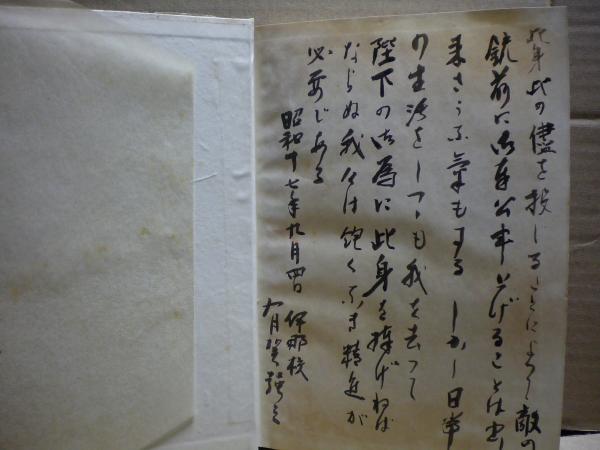 此身此の儘を投じることによつて敵の
銃前に御奉公申上げることは出
来さうな気もする しかし日常
の生活をしつゝも我を去つて
陛下の御為に此身を捧げねば
ならぬ我々は飽くなき精進が
必要である
昭和十七年九月四日 伊那校